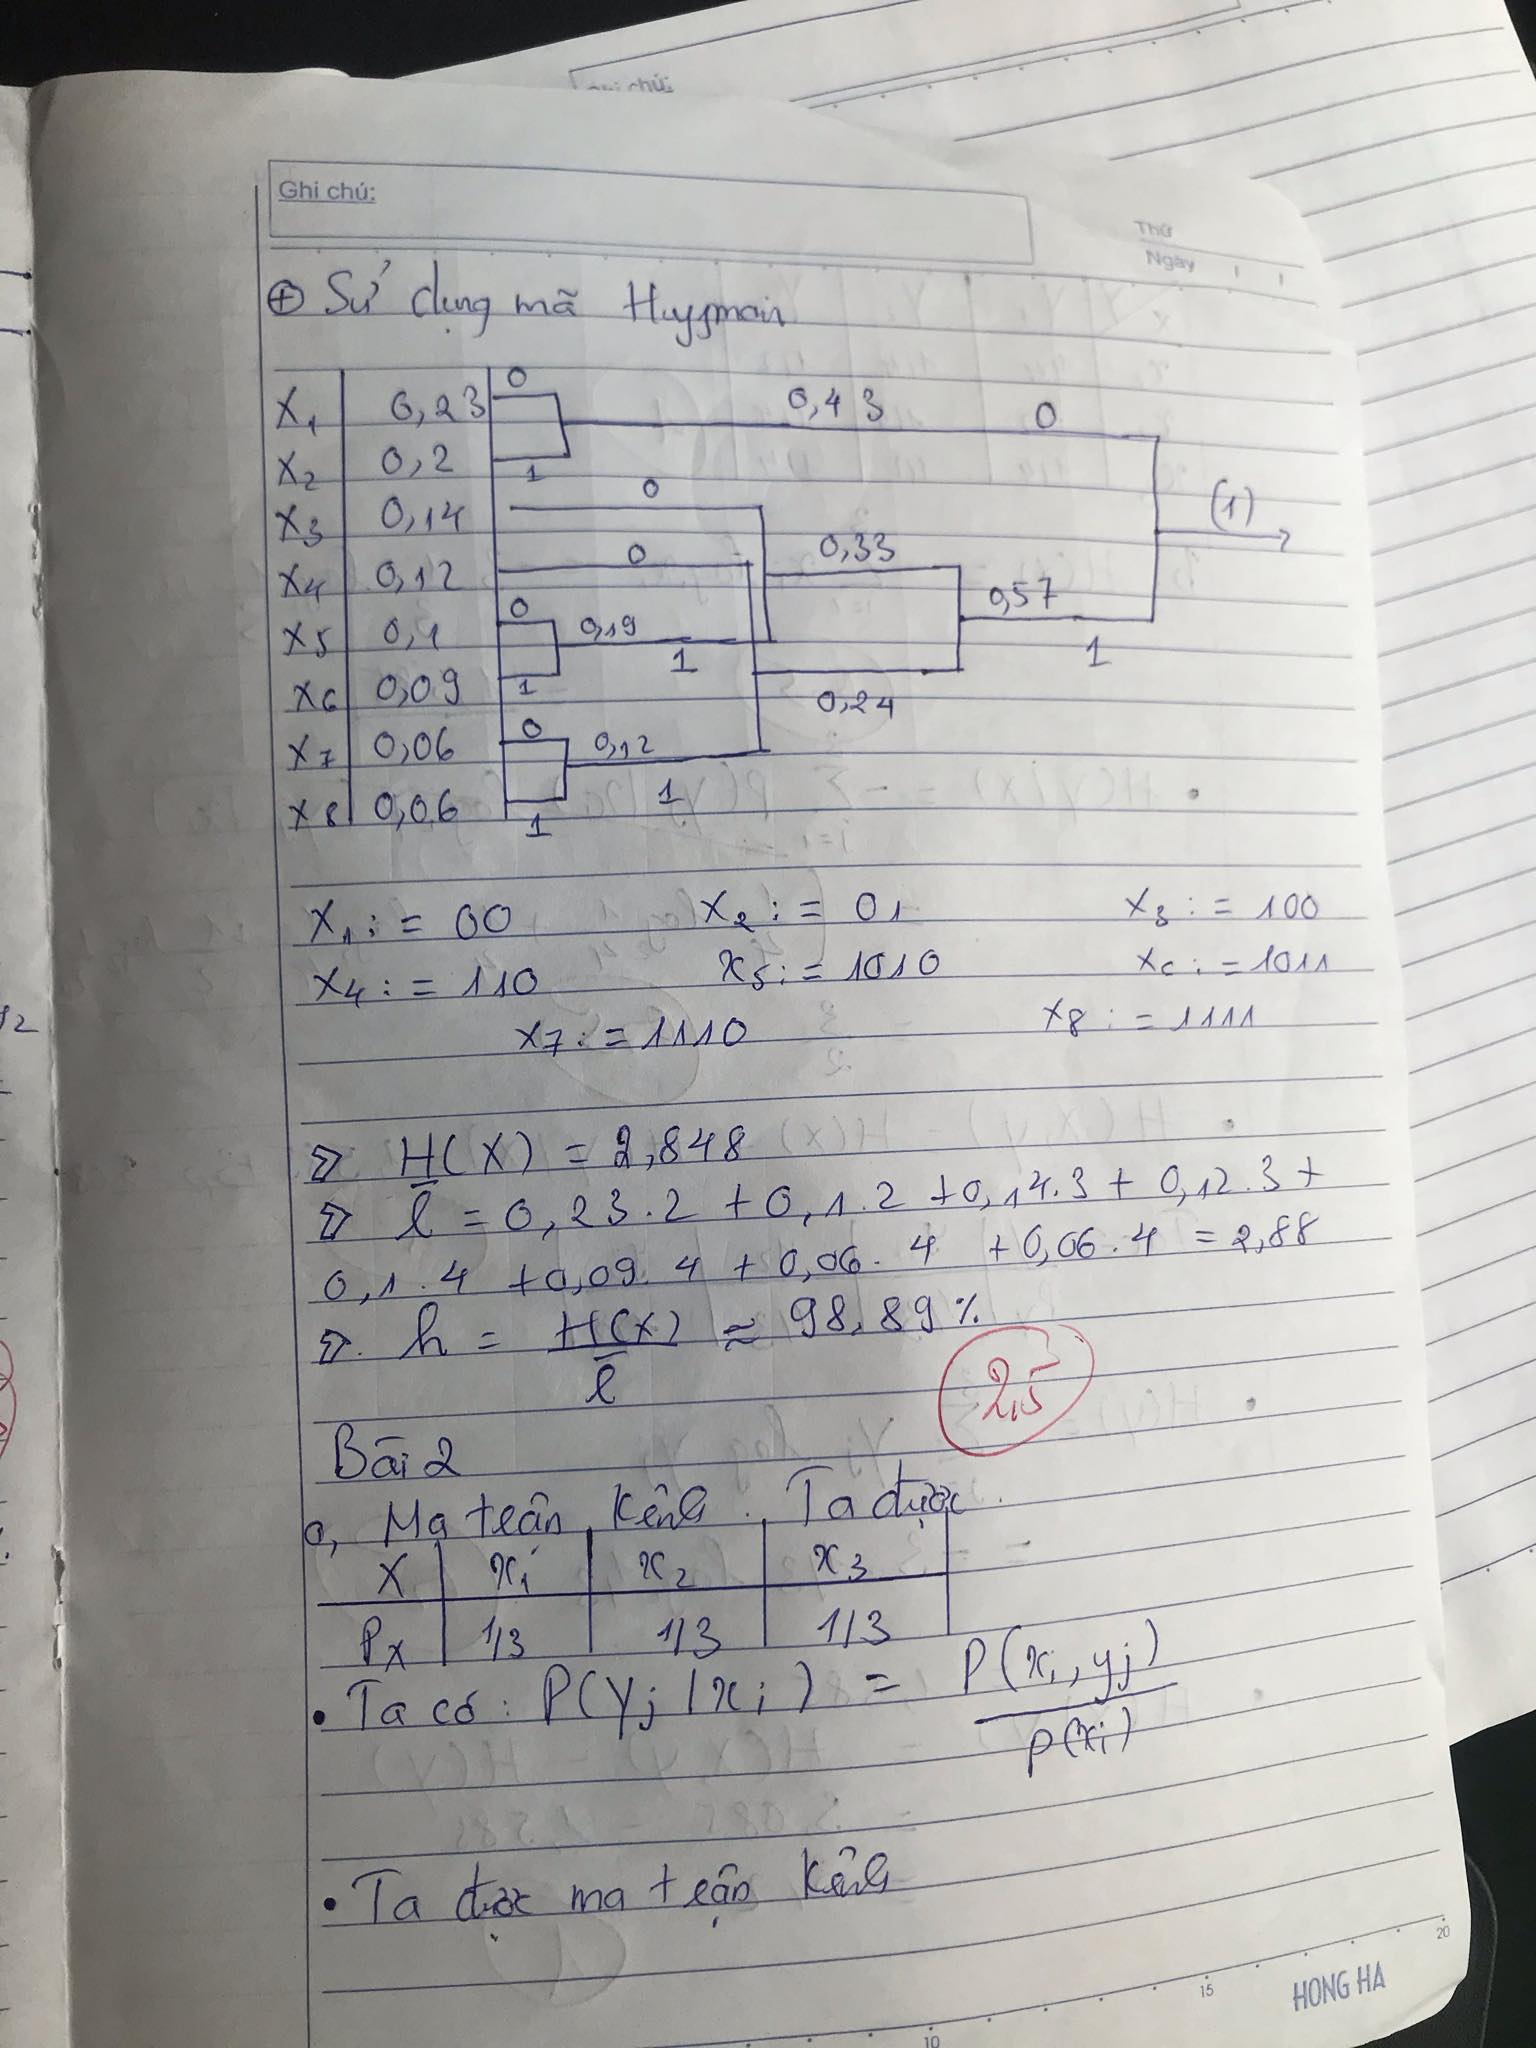 Ghi chú:
Ghi chú:
Thứ
Ngày
⊕ Sử dụng mã Huffman
X1 0,23 0 0,43 0
X2 0,2 1
X3 0,14 0 (1)
X4 0,12 0 0,33
X5 0,1 0 0,19 1 0,57 1
X6 0,09 1 0,24
X7 0,06 0 0,12 1
X8 0,06 1
X1 := 00 X2 := 01 X3 := 100
X4 := 110 X5 := 1010 X6 := 1011
X7 := 1110 X8 := 1111
⇒ H(X) = 2,848
⇒ l̄ = 0,23.2 + 0,1.2 + 0,14.3 + 0,12.3 +
0,1.4 + 0,09.4 + 0,06.4 + 0,06.4 = 2,88
⇒ h = H(X) / l̄ ≈ 98,89%
2,5
Bài 2
a, Ma trận kênh. Ta được
X x1 x2 x3
PX 1/3 1/3 1/3
• Ta có: P(yj/xi) = P(xi, yj) / p(xi)
• Ta được ma trận kênh
10 15 20
HONG HA